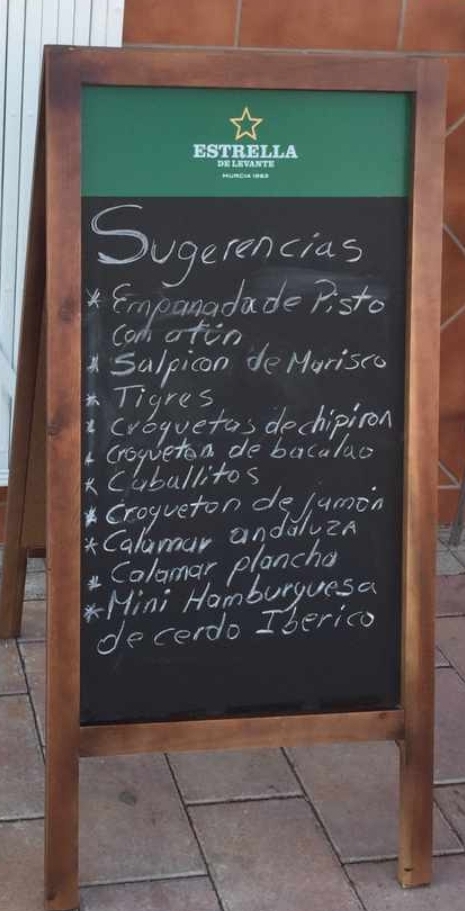 ESTRELLA
DE LEVANTE
MURCIA 1963
Sugerencias
* Empanada de Pisto
con atún
* Salpicon de Marisco
* Tigres
* Croquetas de chipiron
* croqueton de bacalao
* Caballitos
* croqueton de jamón
* Calamar andaluzA
* Calamar plancha
* Mini Hamburguesa
de cerdo Iberico